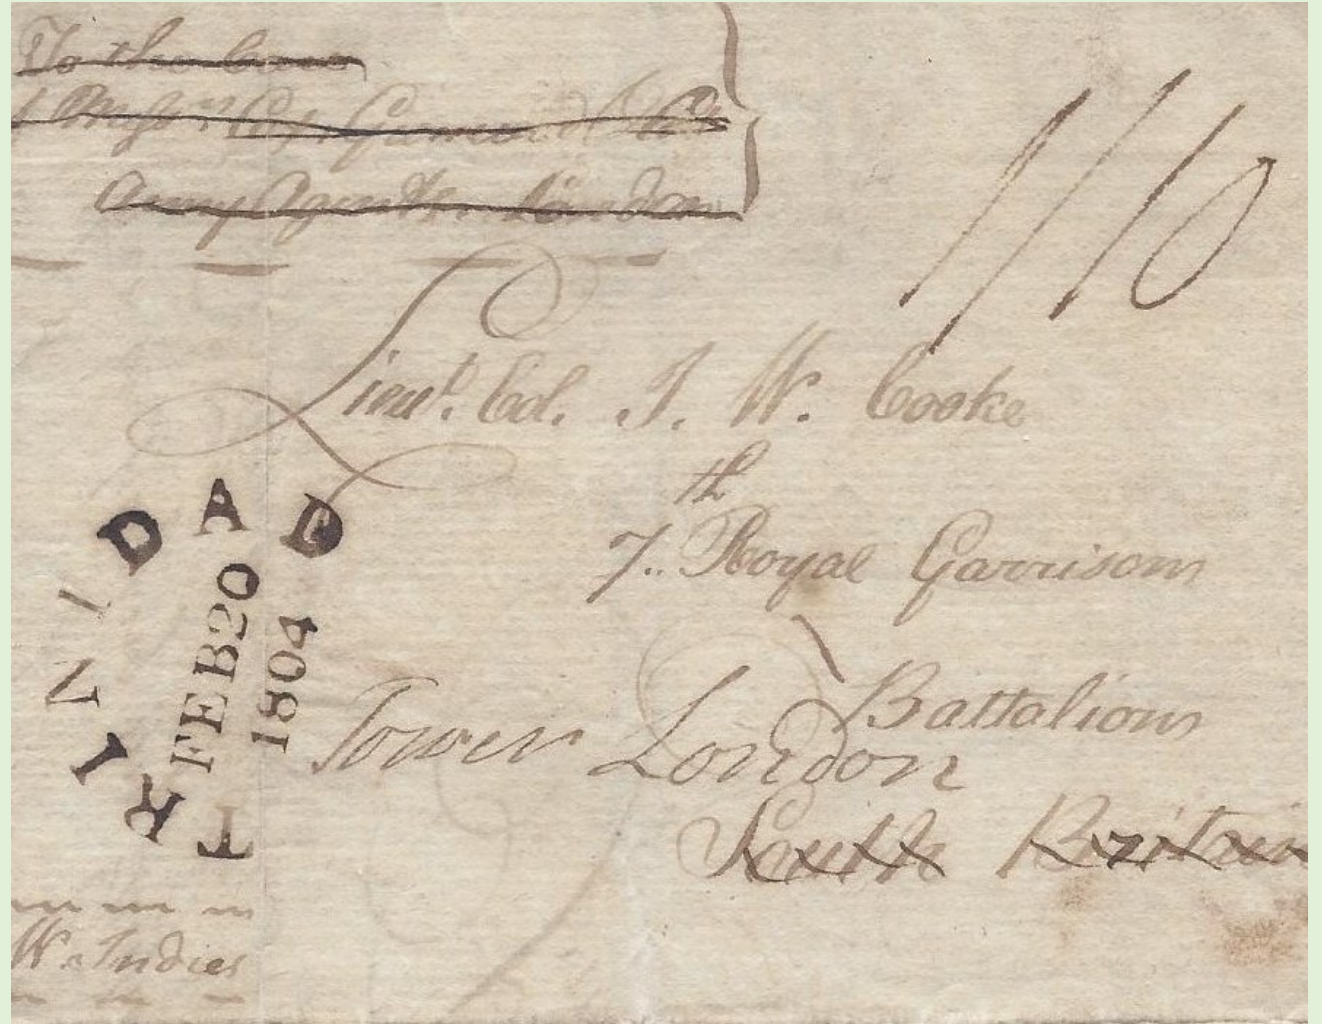 To the Care
Army Agents London
1/10
Lieut. Col. J. W. Cooke
th
7.. Royal Garrison
Battalion
Tower London
South Britain
TRINIDAD
FEB 20
1804
W. Indies